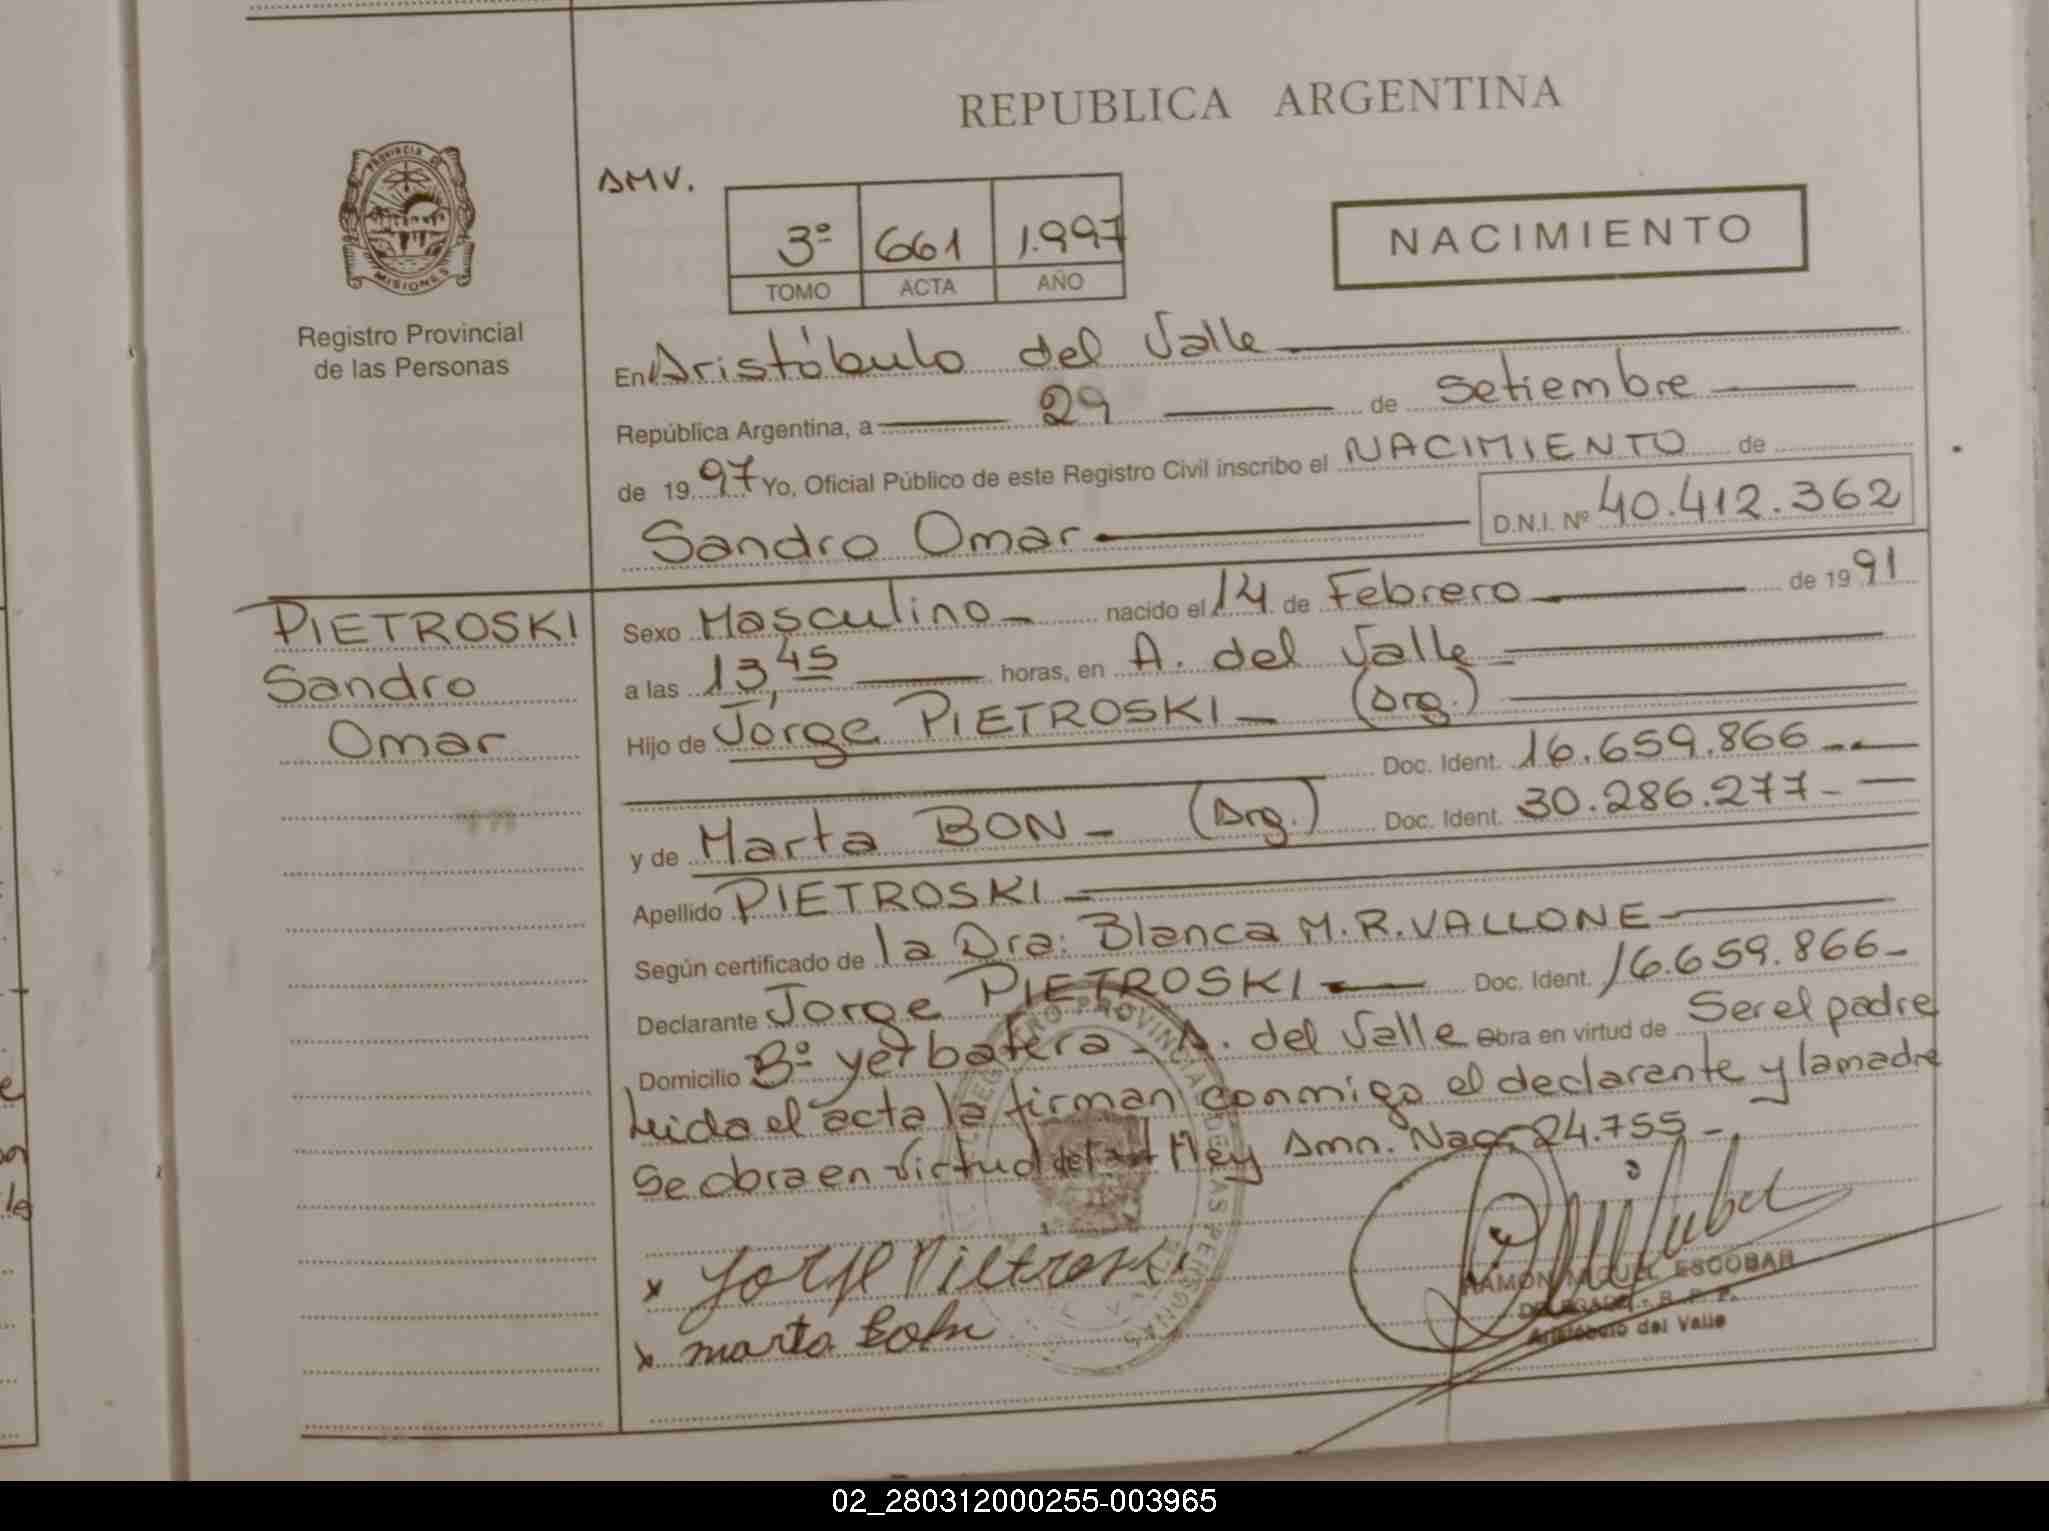 REPUBLICA ARGENTINA
PROVINCIA DE
MISIONES
Registro Provincial
de las Personas
AMV.
3º 661 1.997
TOMO ACTA AÑO
NACIMIENTO
En Aristóbulo del Valle
República Argentina, a 29 de Setiembre
de 1997 Yo, Oficial Público de este Registro Civil inscribo el NACIMIENTO de
Sandro Omar D.N.I. Nº 40.412.362
PIETROSKI
Sandro
Omar
Sexo Masculino nacido el 14 de Febrero de 1991
a las 13,45 horas, en A. del Valle
Hijo de Jorge PIETROSKI (Arg.)
Doc. Ident. 16.659.866
y de Marta BON (Arg.) Doc. Ident. 30.286.277
Apellido PIETROSKI
Según certificado de la Dra: Blanca M.R.VALLONE
Declarante Jorge PIETROSKI Doc. Ident. 16.659.866
Domicilio Bº yerbatera - A. del Valle Obra en virtud de Ser el padre
Leida el acta la firman conmigo el declarante y la madre
Se obra en virtud del Ley Amn. Nac. 24.755
x Jorge Pietroski
x marta Bohn
RAMON MIGUEL ESCOBAR
DELEGADO - R. P. P.
Aristóbulo del Valle
REGISTRO PROVINCIAL DE LAS PERSONAS
02_280312000255-003965